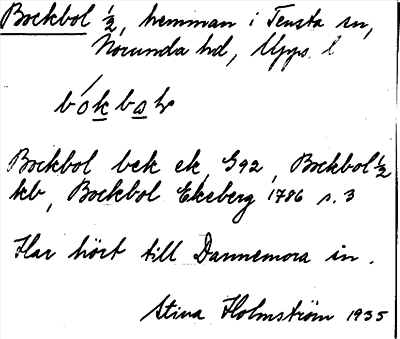 Bockbol ½, hemman i Tensta sn,
Norunda hd, Upps. l
bókboɫ
Bockbol bek ek, G92, Bockbol ½
kb, Bockbol Ekeberg 1786 s. 3
Har hört till Dannemora sn.
Stina Holmström 1935